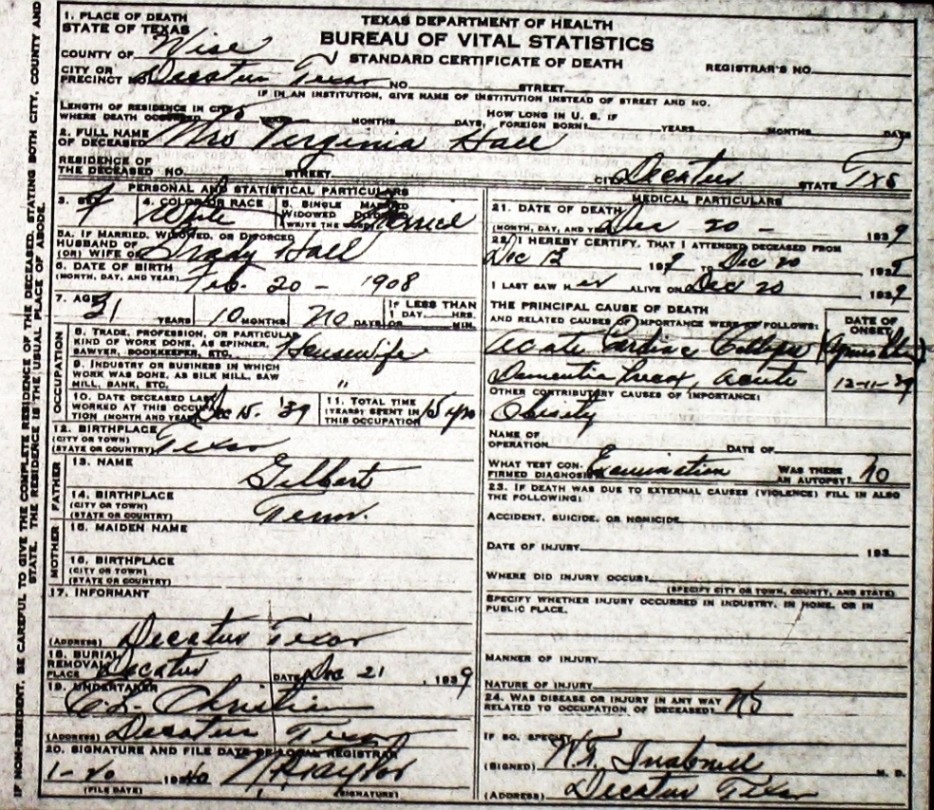 TEXAS DEPARTMENT OF HEALTH
BUREAU OF VITAL STATISTICS
STANDARD CERTIFICATE OF DEATH
1. PLACE OF DEATH
STATE OF TEXAS
COUNTY OF Wise
REGISTRAR'S NO.
CITY OR PRECINCT NO. Decatur Texas NO. STREET
IF IN AN INSTITUTION, GIVE NAME OF INSTITUTION INSTEAD OF STREET AND NO.
LENGTH OF RESIDENCE IN CITY
WHERE DEATH OCCURRED YEARS MONTHS DAYS.
HOW LONG IN U. S. IF FOREIGN BORN? YEARS MONTHS DAYS
2. FULL NAME OF DECEASED Mrs Verginia Hall
RESIDENCE OF THE DECEASED NO. STREET CITY Decatur STATE Txs
PERSONAL AND STATISTICAL PARTICULARS
3. SEX F
4. COLOR OR RACE White
5. SINGLE MARRIED WIDOWED DIVORCED (WRITE THE WORD) Married
5A. IF MARRIED, WIDOWED, OR DIVORCED
HUSBAND OF (OR) WIFE OF Grady Hall
6. DATE OF BIRTH
(MONTH, DAY, AND YEAR) Feb. 20 - 1908
7. AGE 31 YEARS 10 MONTHS DAYS IF LESS THAN 1 DAY HRS. MIN.
OCCUPATION
8. TRADE, PROFESSION, OR PARTICULAR KIND OF WORK DONE, AS SPINNER, SAWYER, BOOKKEEPER, ETC. Housewife
9. INDUSTRY OR BUSINESS IN WHICH WORK WAS DONE, AS SILK MILL, SAW MILL, BANK, ETC. "
10. DATE DECEASED LAST WORKED AT THIS OCCUPATION (MONTH AND YEAR) Dec 15. '39
11. TOTAL TIME (YEARS) SPENT IN THIS OCCUPATION 15 yrs
12. BIRTHPLACE
(CITY OR TOWN)
(STATE OR COUNTRY) Texas
FATHER
13. NAME Gilbert
14. BIRTHPLACE
(CITY OR TOWN)
(STATE OR COUNTRY) Tenn.
MOTHER
15. MAIDEN NAME
16. BIRTHPLACE
(CITY OR TOWN)
(STATE OR COUNTRY)
17. INFORMANT
(ADDRESS) Decatur Texas
18. BURIAL REMOVAL
PLACE Decatur DATE Dec 21, 1939
19. UNDERTAKER Christian
(ADDRESS) Decatur Texas
20. SIGNATURE AND FILE DATE OF LOCAL REGISTRAR
1-20 1940
(FILE DATE) (SIGNATURE)
MEDICAL PARTICULARS
21. DATE OF DEATH
(MONTH, DAY, AND YEAR) Dec 20 - 1939
22. I HEREBY CERTIFY, THAT I ATTENDED DECEASED FROM
Dec 193 TO Dec 20 193
I LAST SAW HER ALIVE ON Dec 20 1939
THE PRINCIPAL CAUSE OF DEATH
AND RELATED CAUSES OF IMPORTANCE WERE AS FOLLOWS:
DATE OF ONSET
Acute Cardiac Collapse
Dementia Precox, Acute 12-11-39
OTHER CONTRIBUTORY CAUSES OF IMPORTANCE:
Obesity
NAME OF OPERATION DATE OF
WHAT TEST CONFIRMED DIAGNOSIS? Examination WAS THERE AN AUTOPSY? no
23. IF DEATH WAS DUE TO EXTERNAL CAUSES (VIOLENCE) FILL IN ALSO THE FOLLOWING:
ACCIDENT, SUICIDE, OR HOMICIDE
DATE OF INJURY 193
WHERE DID INJURY OCCUR?
(SPECIFY CITY OR TOWN, COUNTY, AND STATE)
SPECIFY WHETHER INJURY OCCURRED IN INDUSTRY, IN HOME, OR IN PUBLIC PLACE.
MANNER OF INJURY
NATURE OF INJURY
24. WAS DISEASE OR INJURY IN ANY WAY RELATED TO OCCUPATION OF DECEASED? No
IF SO, SPECIFY
(SIGNED) M. D.
(ADDRESS) Decatur Texas
IF NON-RESIDENT, BE CAREFUL TO GIVE THE COMPLETE RESIDENCE OF THE DECEASED, STATING BOTH CITY, COUNTY AND
STATE. THE RESIDENCE IS THE USUAL PLACE OF ABODE.